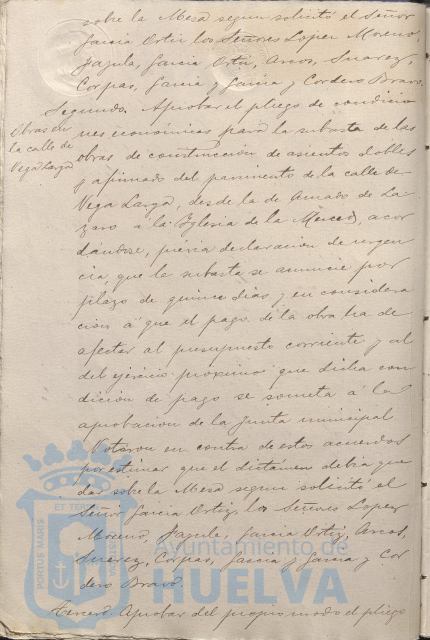 sobre la Mesa segun solicitó el Señor
Garcia Ortiz los Señores Lopez Moreno,
Jagula, Garcia Ortiz, Arcos, Suarez,
Corpas, Garcia y Garcia y Cordero Bravo.
Segundo. Aprobar el pliego de condicio
nes económicas para la subasta de las
Obras en
la calle de
Vega Larga
obras de construcción de asientos dobles
y afirmado del pavimento de la calle de
Vega Larga, desde la de Amado de La-
zaro á la Iglesia de la Merced, acor
dándose, prévia declaracion de urgen
cia, que la subasta se anuncie por
plazo de quince dias y en considera
cion á que el pago de la obra ha de
afectar al presupuesto corriente y al
del ejercicio proximo que dicha con
dicion de pago se someta á la
aprobacion de la Junta municipal
Votaron en contra de estos acuerdos
por estimar que el dictamen debia que
dar sobre la Mesa segun solicitó el
Señor Garcia Ortiz, los Señores Lopez
Moreno, Jagula, Garcia Ortiz, Arcos,
Suarez, Corpas, Garcia y Garcia y Cor
dero Bravo.
Tercero Aprobar del propio modo el pliego
PORTUS MARIS
ET TERRAE
Ayuntamiento de
HUELVA